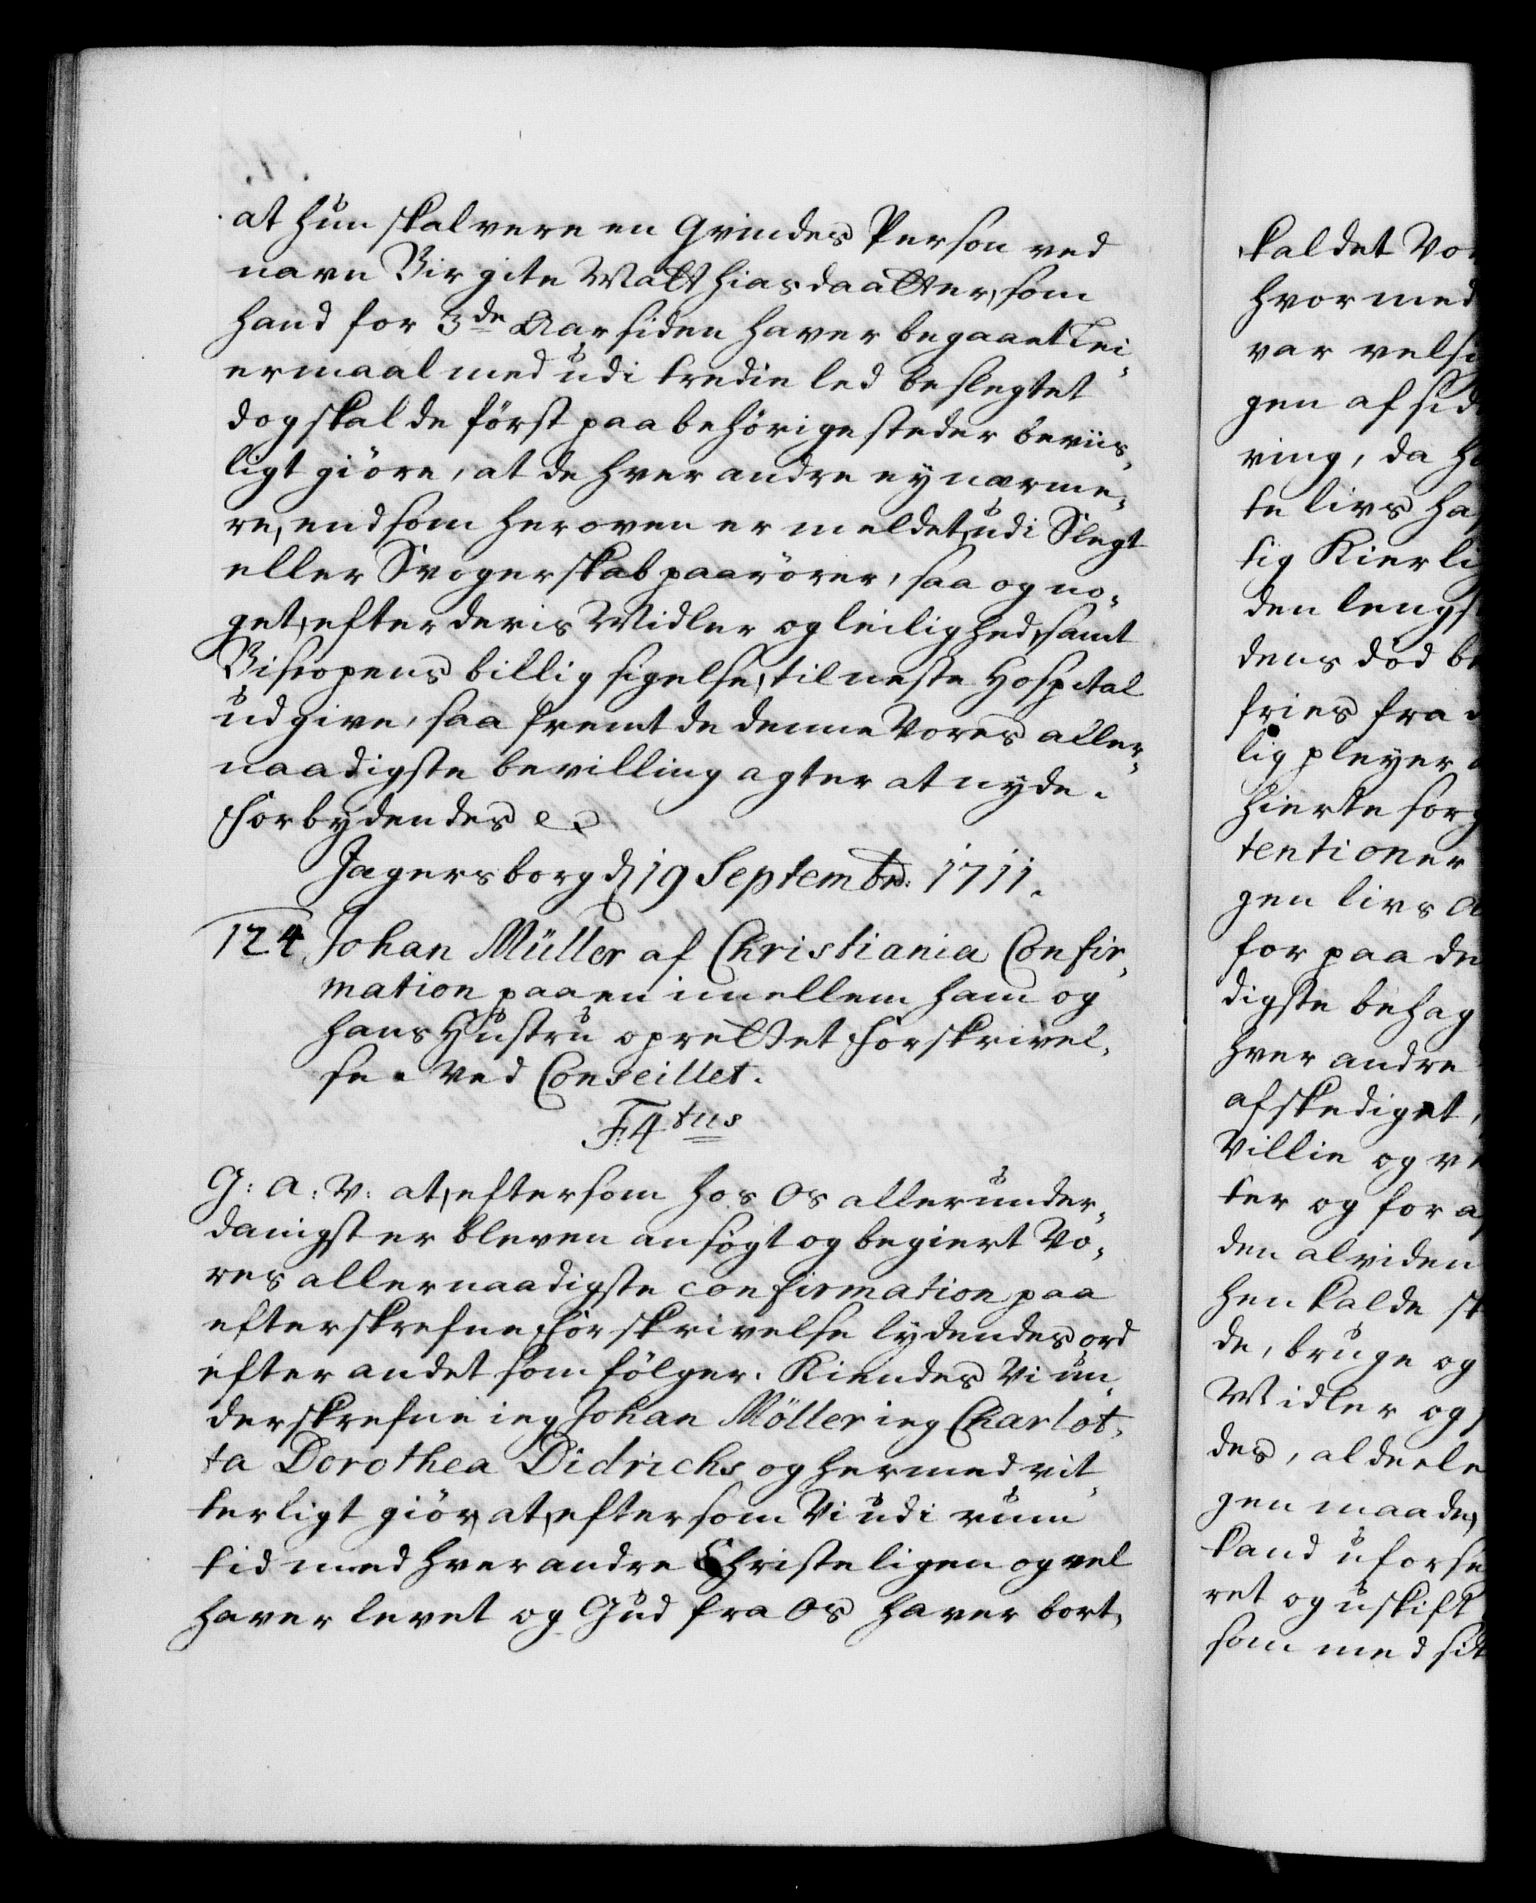 at hun skal være en Qvindes Person ved
navn Birgite Matthiasdaatter, som
hand for 3de Aar siden haver begaaet Lei,
ermaal med udi tredie led beslegtet
dog skal de först paa behörige steder beviis,
ligt giöre, at de hver andre ey nærme,
re, end som her oven er meldet, udi Slegt
eller Svogerskab paarörer, saa og no,
get, efter deris Midler og leilighed, samt
Biscopens billig sigelse, til neste Hospital
udgive, saa fremt de denne Vores aller,
naadigste bevilling agter at nyde.
Forbydendes
Jagersborg d 19 Septembr: 1711.
124. Johan Müller af Christiania Confir,
mation paa en imellem ham og
hans Hustru oprettet Forskrivel,
se. Ved Conseillet.
F: 4tus
G: A: V: at, eftersom hos Os allerunder,
danigst er bleven ansögt og begiert Vo,
res allernaadigste confirmation paa
efterskrefne Forskrivelse lydendes ord
efter andet som fölger. Kiendes Vi un,
derskrefne ieg Johan Möller ieg Charlot,
ta Dorothea Didrichs og hermed vit,
terligt giör, at, eftersom Vi udi rum
tid med hver andre Christeligen og vel
haver levet og Gud fra Os haver bort,
kaldet Vor
hvormed
var velsi
gen af sid
ring, da
te livs
tig Kierli
den lengs
dens död be
fries fra
lig pleyer
hierte sorg
tentioner
gen livs
for paa de
digste behag
hver andre
afskediget,
Villie og
ter og for
den alviden
hen kalde
de, bruge og
Midler og
des, aldeele
gen maade,
kand uforse
ret og uskift
som med sid